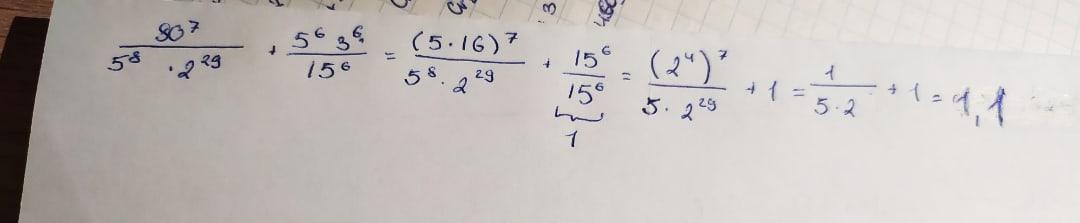 80⁷ / (5⁸ · 2²⁹) + 5⁶ 3⁶ / 15⁶ = (5·16)⁷ / (5⁸ · 2²⁹) + 15⁶ / 15⁶ = (2⁴)⁷ / (5 · 2²⁹) + 1 = 1 / (5·2) + 1 = 1,1
1